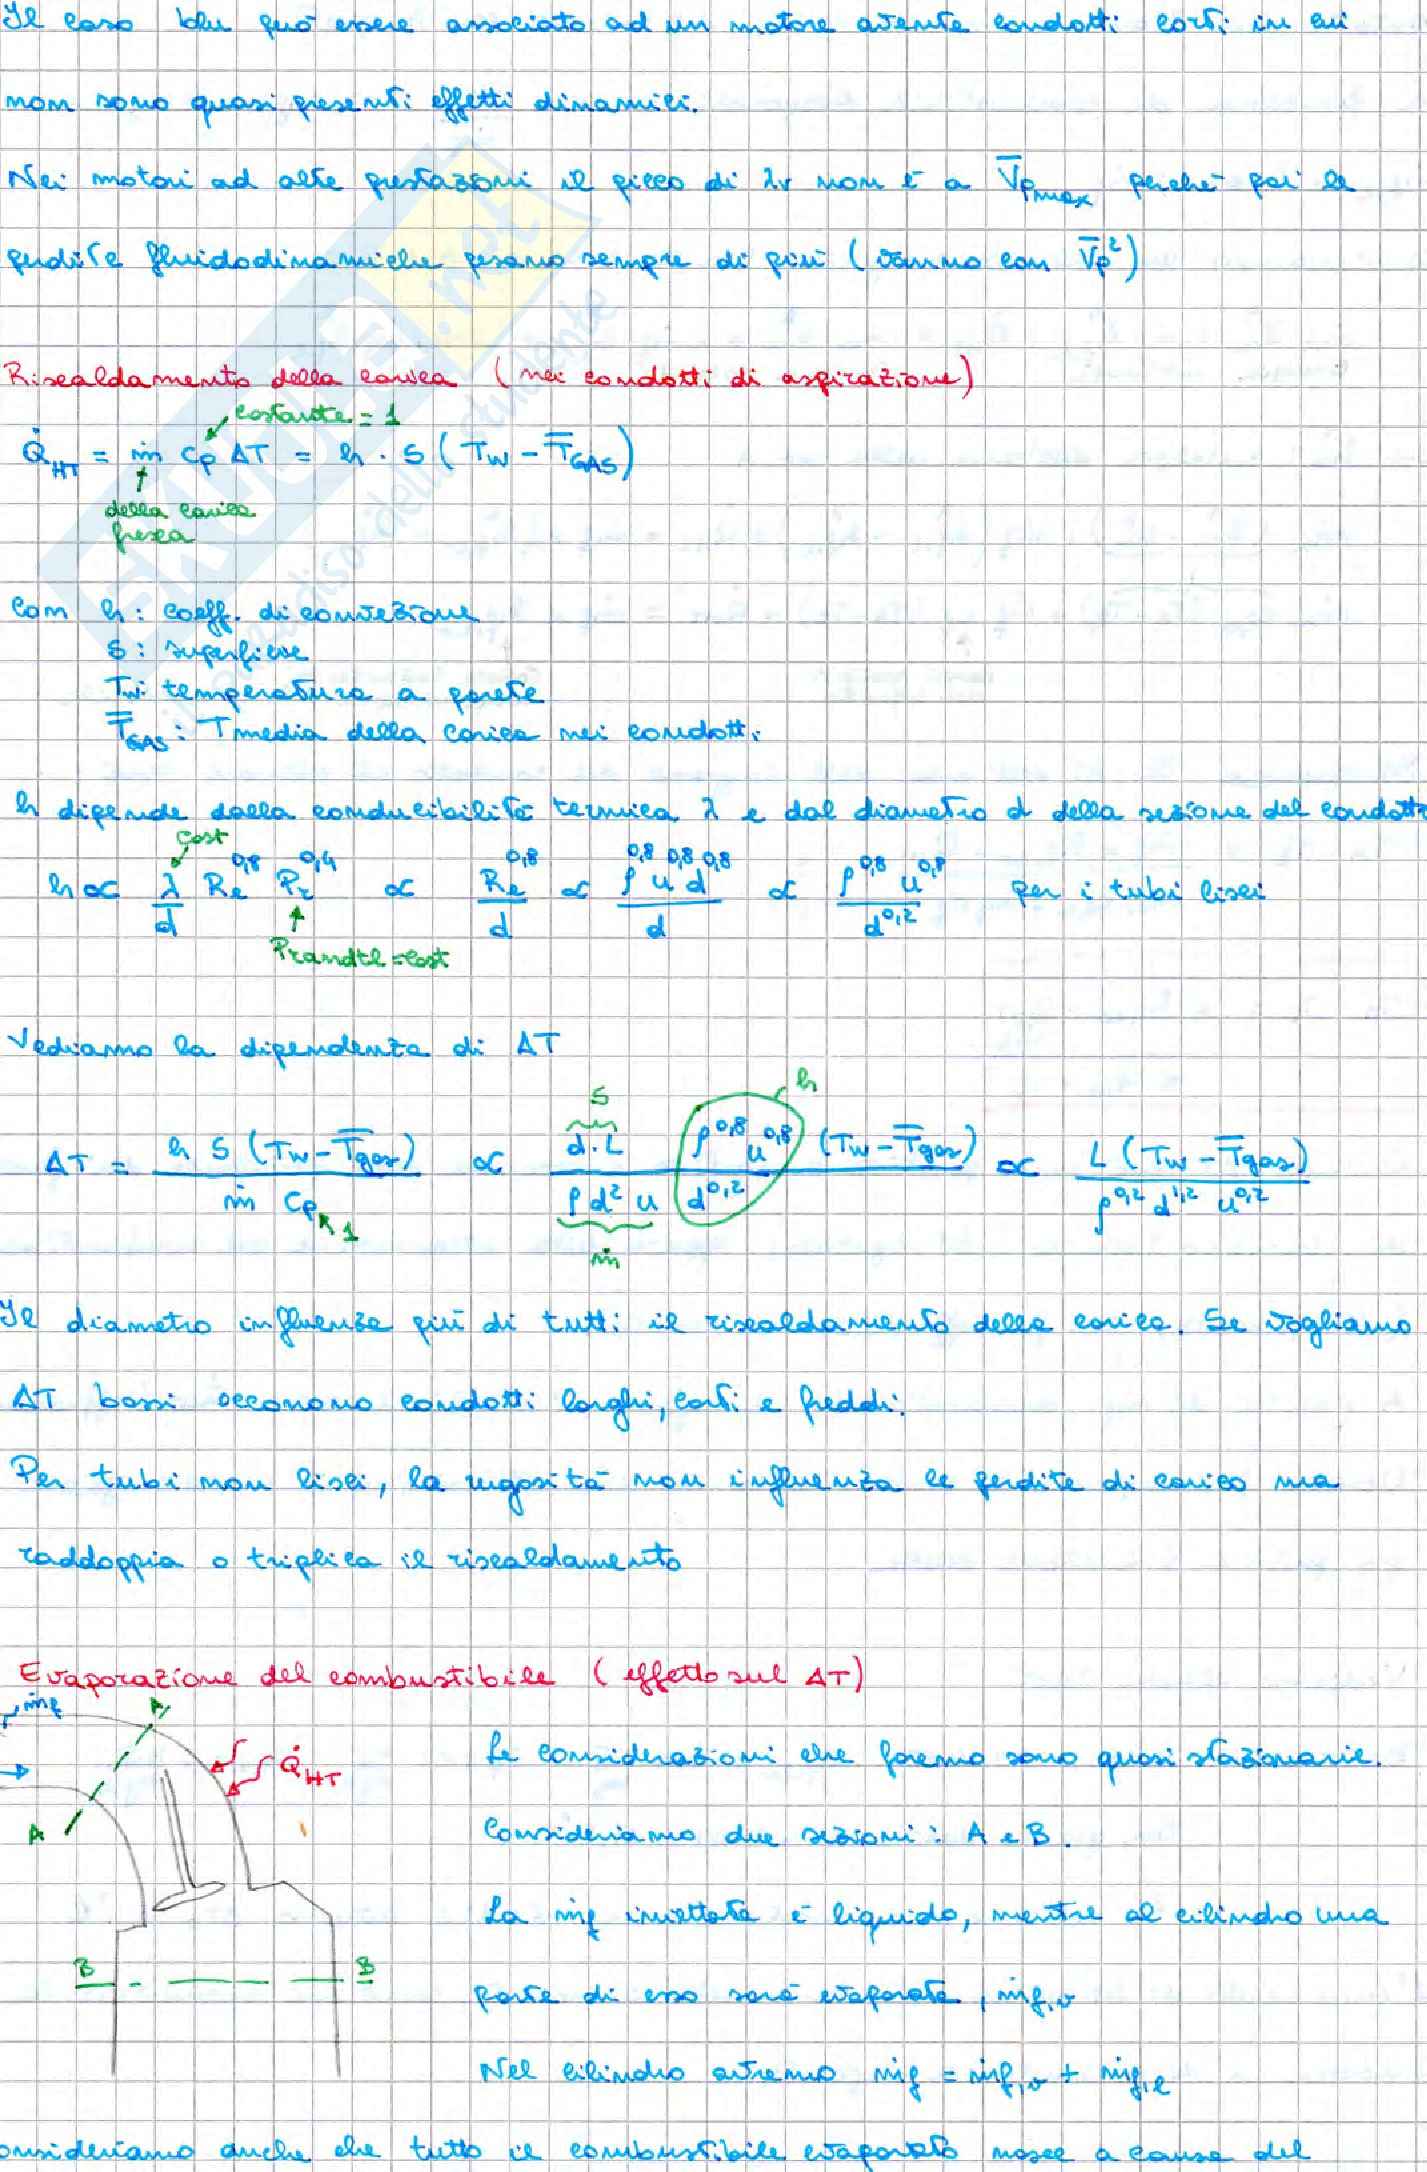 Il caso blu può essere associato ad un motore avente condotti corti in cui
non sono quasi presenti effetti dinamici.
Nei motori ad alte prestazioni il picco di λv non è a V̅pmax perché poi le
perdite fluidodinamiche pesano sempre di più (vanno con V̅p²)
SKUOLA.net
il paradiso dello studente
Riscaldamento della carica (nei condotti di aspirazione)
costante = 1
Q̇HT = ṁ cp ΔT = h · S (Tw - T̿GAS)
della carica
fresca
con h: coeff. di convezione
S: superficie
Tw: temperatura a parete
T̿GAS: T media della carica nei condotti
h dipende dalla conducibilità termica λ e dal diametro d della sezione del condotto
cost
h ∝ λ/d Re^0,8 Pr^0,4 ∝ Re^0,8/d ∝ ρ^0,8 u^0,8 d^0,8/d ∝ ρ^0,8 u^0,8/d^0,2 per i tubi lisci
Prandtl = cost
Vediamo la dipendenza di ΔT
S h
ΔT = h S (Tw - T̿gas)/ṁ cp ∝ d·L/ρ d² u ρ^0,8 u^0,8/d^0,2 (Tw - T̿gas) ∝ L (Tw - T̿gas)/ρ^0,2 d^1,2 u^0,2
1 ṁ
Il diametro influenza più di tutti il riscaldamento della carica. Se vogliamo
ΔT bassi occorrono condotti larghi, corti e freddi.
Per tubi non lisci, la rugosità non influenza le perdite di carico ma
raddoppia o triplica il riscaldamento
Evaporazione del combustibile (effetto sul ΔT)
ṁf A
Le considerazioni che faremo sono quasi stazionarie.
Q̇HT
A
Consideriamo due sezioni: A e B.
La ṁf iniettata è liquido, mentre al cilindro una
B B
parte di esso sarà evaporata, ṁf,v
Nel cilindro avremo ṁf = ṁf,v + ṁf,l
onsideriamo anche che tutto il combustibile evaporato nasce a causa del